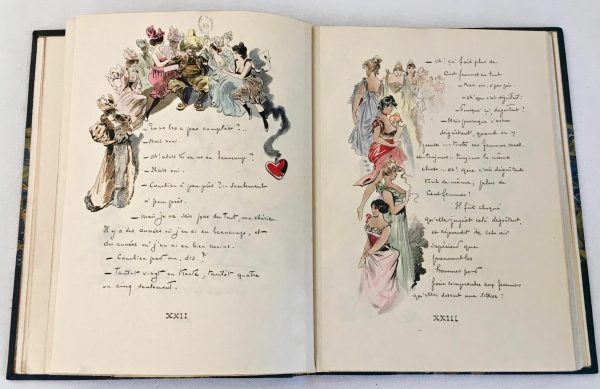 — Tu ne les as pas comptées ?...
— Mais non.
— Oh! alors tu en as eu beaucoup?
— Mais oui.
— Combien à peu près ?.. seulement
à peu près.
— Mais je ne sais pas du tout, ma chérie.
Il y a des années où j'en ai eu beaucoup, et
des années où j'en ai eu bien moins.
— Combien par an, dis ?
— Tantôt vingt ou trente, tantôt quatre
ou cinq seulement.
XXII
— Oh! ça fait plus de
cent femmes en tout
— Mais oui, à peu près.
— Oh! que c'est dégoûtant!
— Pourquoi ça dégoûtant?
— Mais parce que c'est
dégoûtant, quand on y
pense... toutes ces femmes.. nues..
et toujours.. toujours la même
chose... oh! que c'est dégoûtant
tout de même, plus de
cent femmes!
Il fut choqué
qu'elle jugeât cela dégoûtant,
et répondit de cet air
supérieur que
prennent les
hommes pour
faire comprendre aux femmes
qu'elles disent une sottise:
XXIII